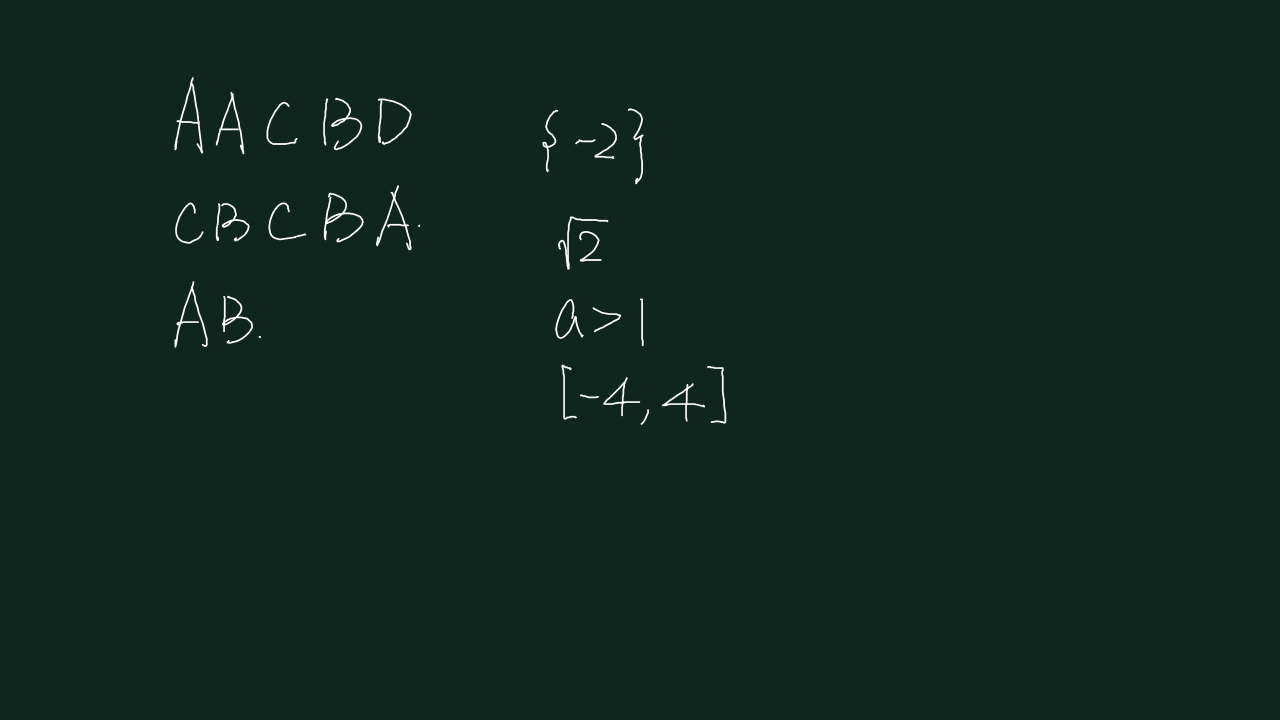 AACBD
CBCBA.
AB.
{-2}
√2
a>1
[-4,4]